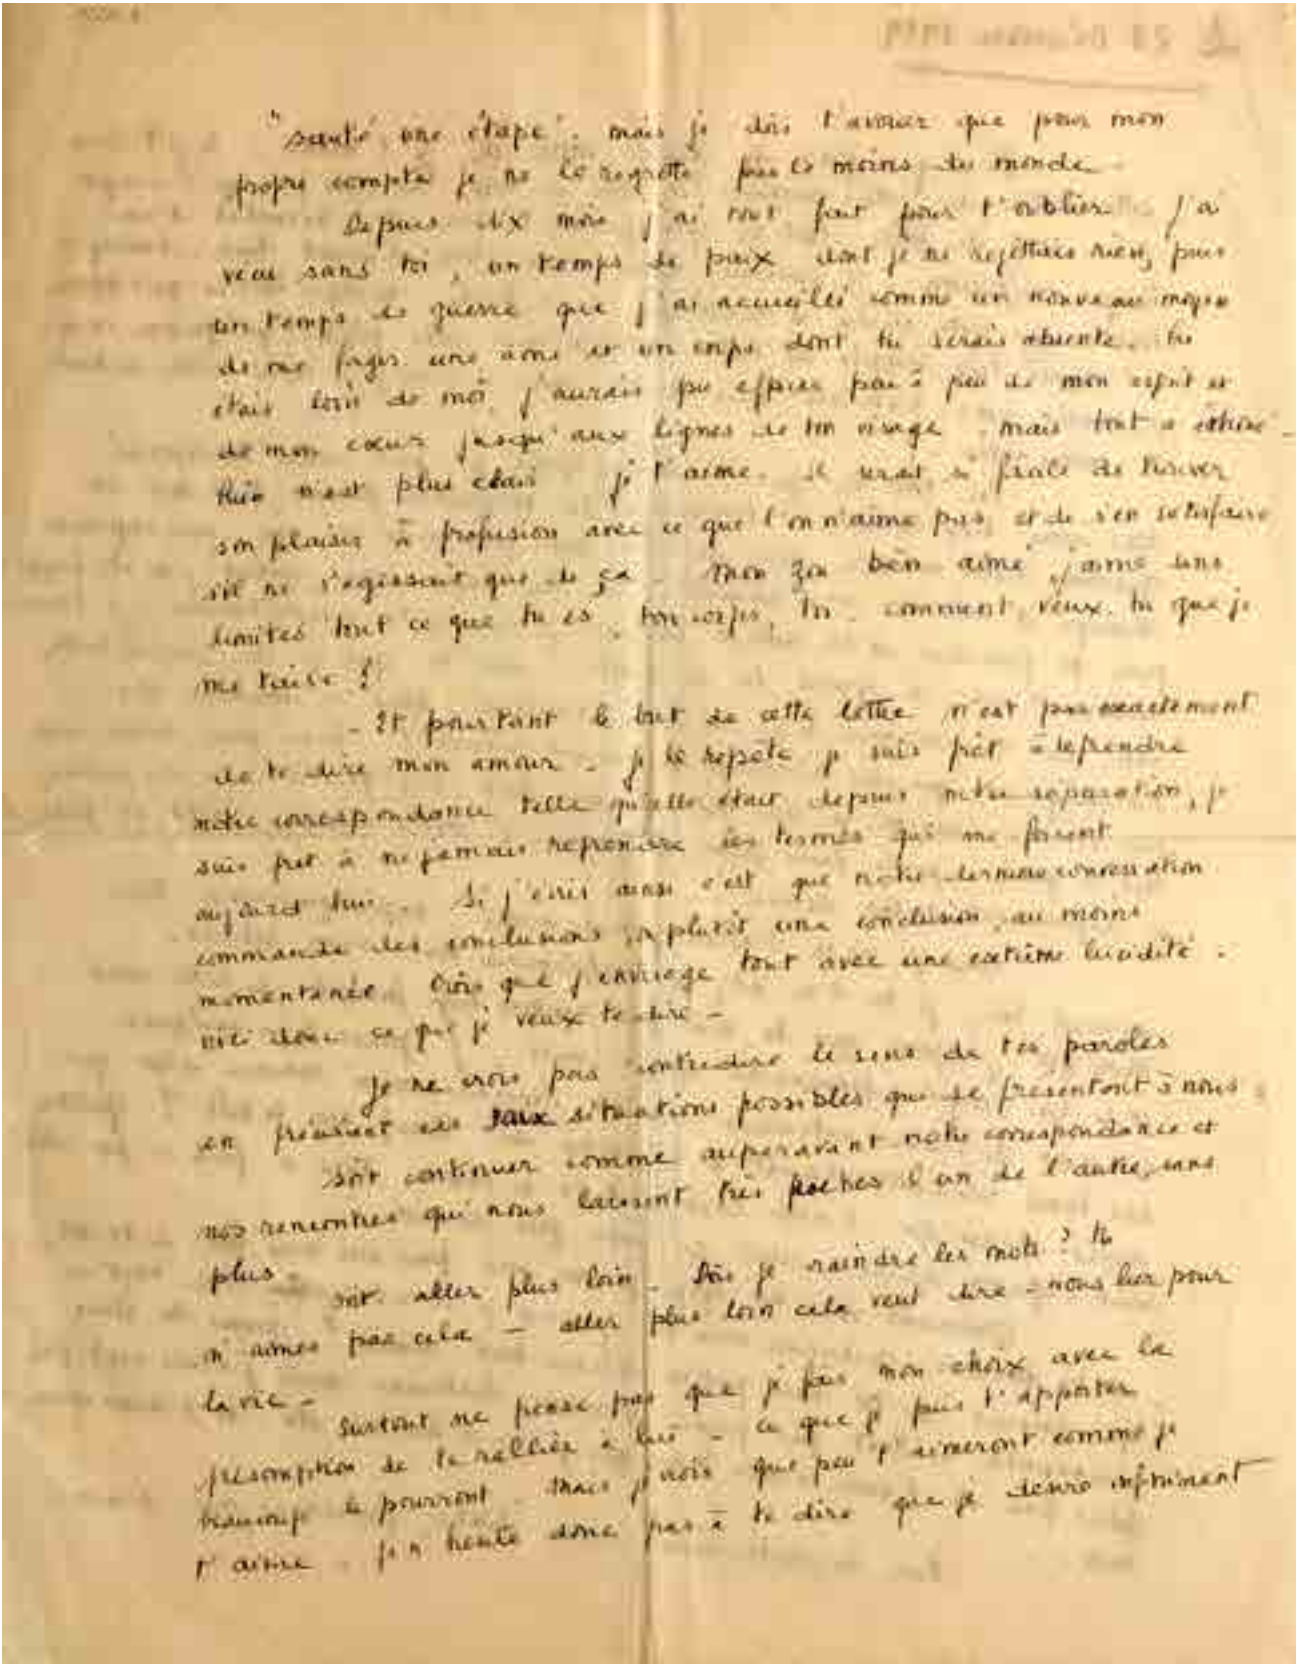 "sauté une étape". mais je dois t'avouer que pour mon
propre compte je ne le regrette pas le moins du monde -
Depuis dix mois j'ai tout fait pour t'oublier. J'ai
vécu sans toi, un temps de paix dont je ne rejettais rien, puis
un temps de guerre que j'ai accueilli comme un nouveau moyen
de me forger une âme et un corps dont tu serais absente. tu
étais loin de moi, j'aurais pu effacer peu à peu de mon esprit et
de mon cœur jusqu'aux lignes de ton visage. mais tout a échoué -
Rien n'est plus clair je t'aime. Il serait si facile de trouver
son plaisir à profusion avec ce que l'on n'aime pas, et de s'en satisfaire
s'il ne s'agissait que de ça - Mon Zou bien aimé, j'aime sans
limites tout ce que tu es, ton corps, toi. comment veux-tu que je
me taise ?
- Et pourtant le but de cette lettre n'est pas exactement
de te dire mon amour - je le répète je suis prêt à reprendre
notre correspondance telle qu'elle était depuis notre séparation, je
suis prêt à ne jamais reprendre ces termes qui me forcent
aujourd'hui - Si j'écris ainsi c'est que notre dernière conversation
commande des conclusions, ou plutôt une conclusion, au moins
momentanée. Crois que j'envisage tout avec une extrême lucidité.
voici donc ce que je veux te dire -
Je ne crois pas contredire le sens de tes paroles
en précisant les situations possibles qui se présentent à nous :
soit continuer comme auparavant notre correspondance et
nos rencontres qui nous laissent très proches l'un de l'autre, sans
plus -
soit aller plus loin - Dois-je craindre les mots ? tu
n'aimes pas cela - aller plus loin cela veut dire - nous lier pour
la vie -
Surtout ne pense pas que je fais mon choix avec la
présomption de te rallier à lui - ce que je puis t'apporter
beaucoup le pourront. Mais je crois que peu t'aimeront comme je
t'aime. Je n'hésite donc pas à te dire que je désire infiniment